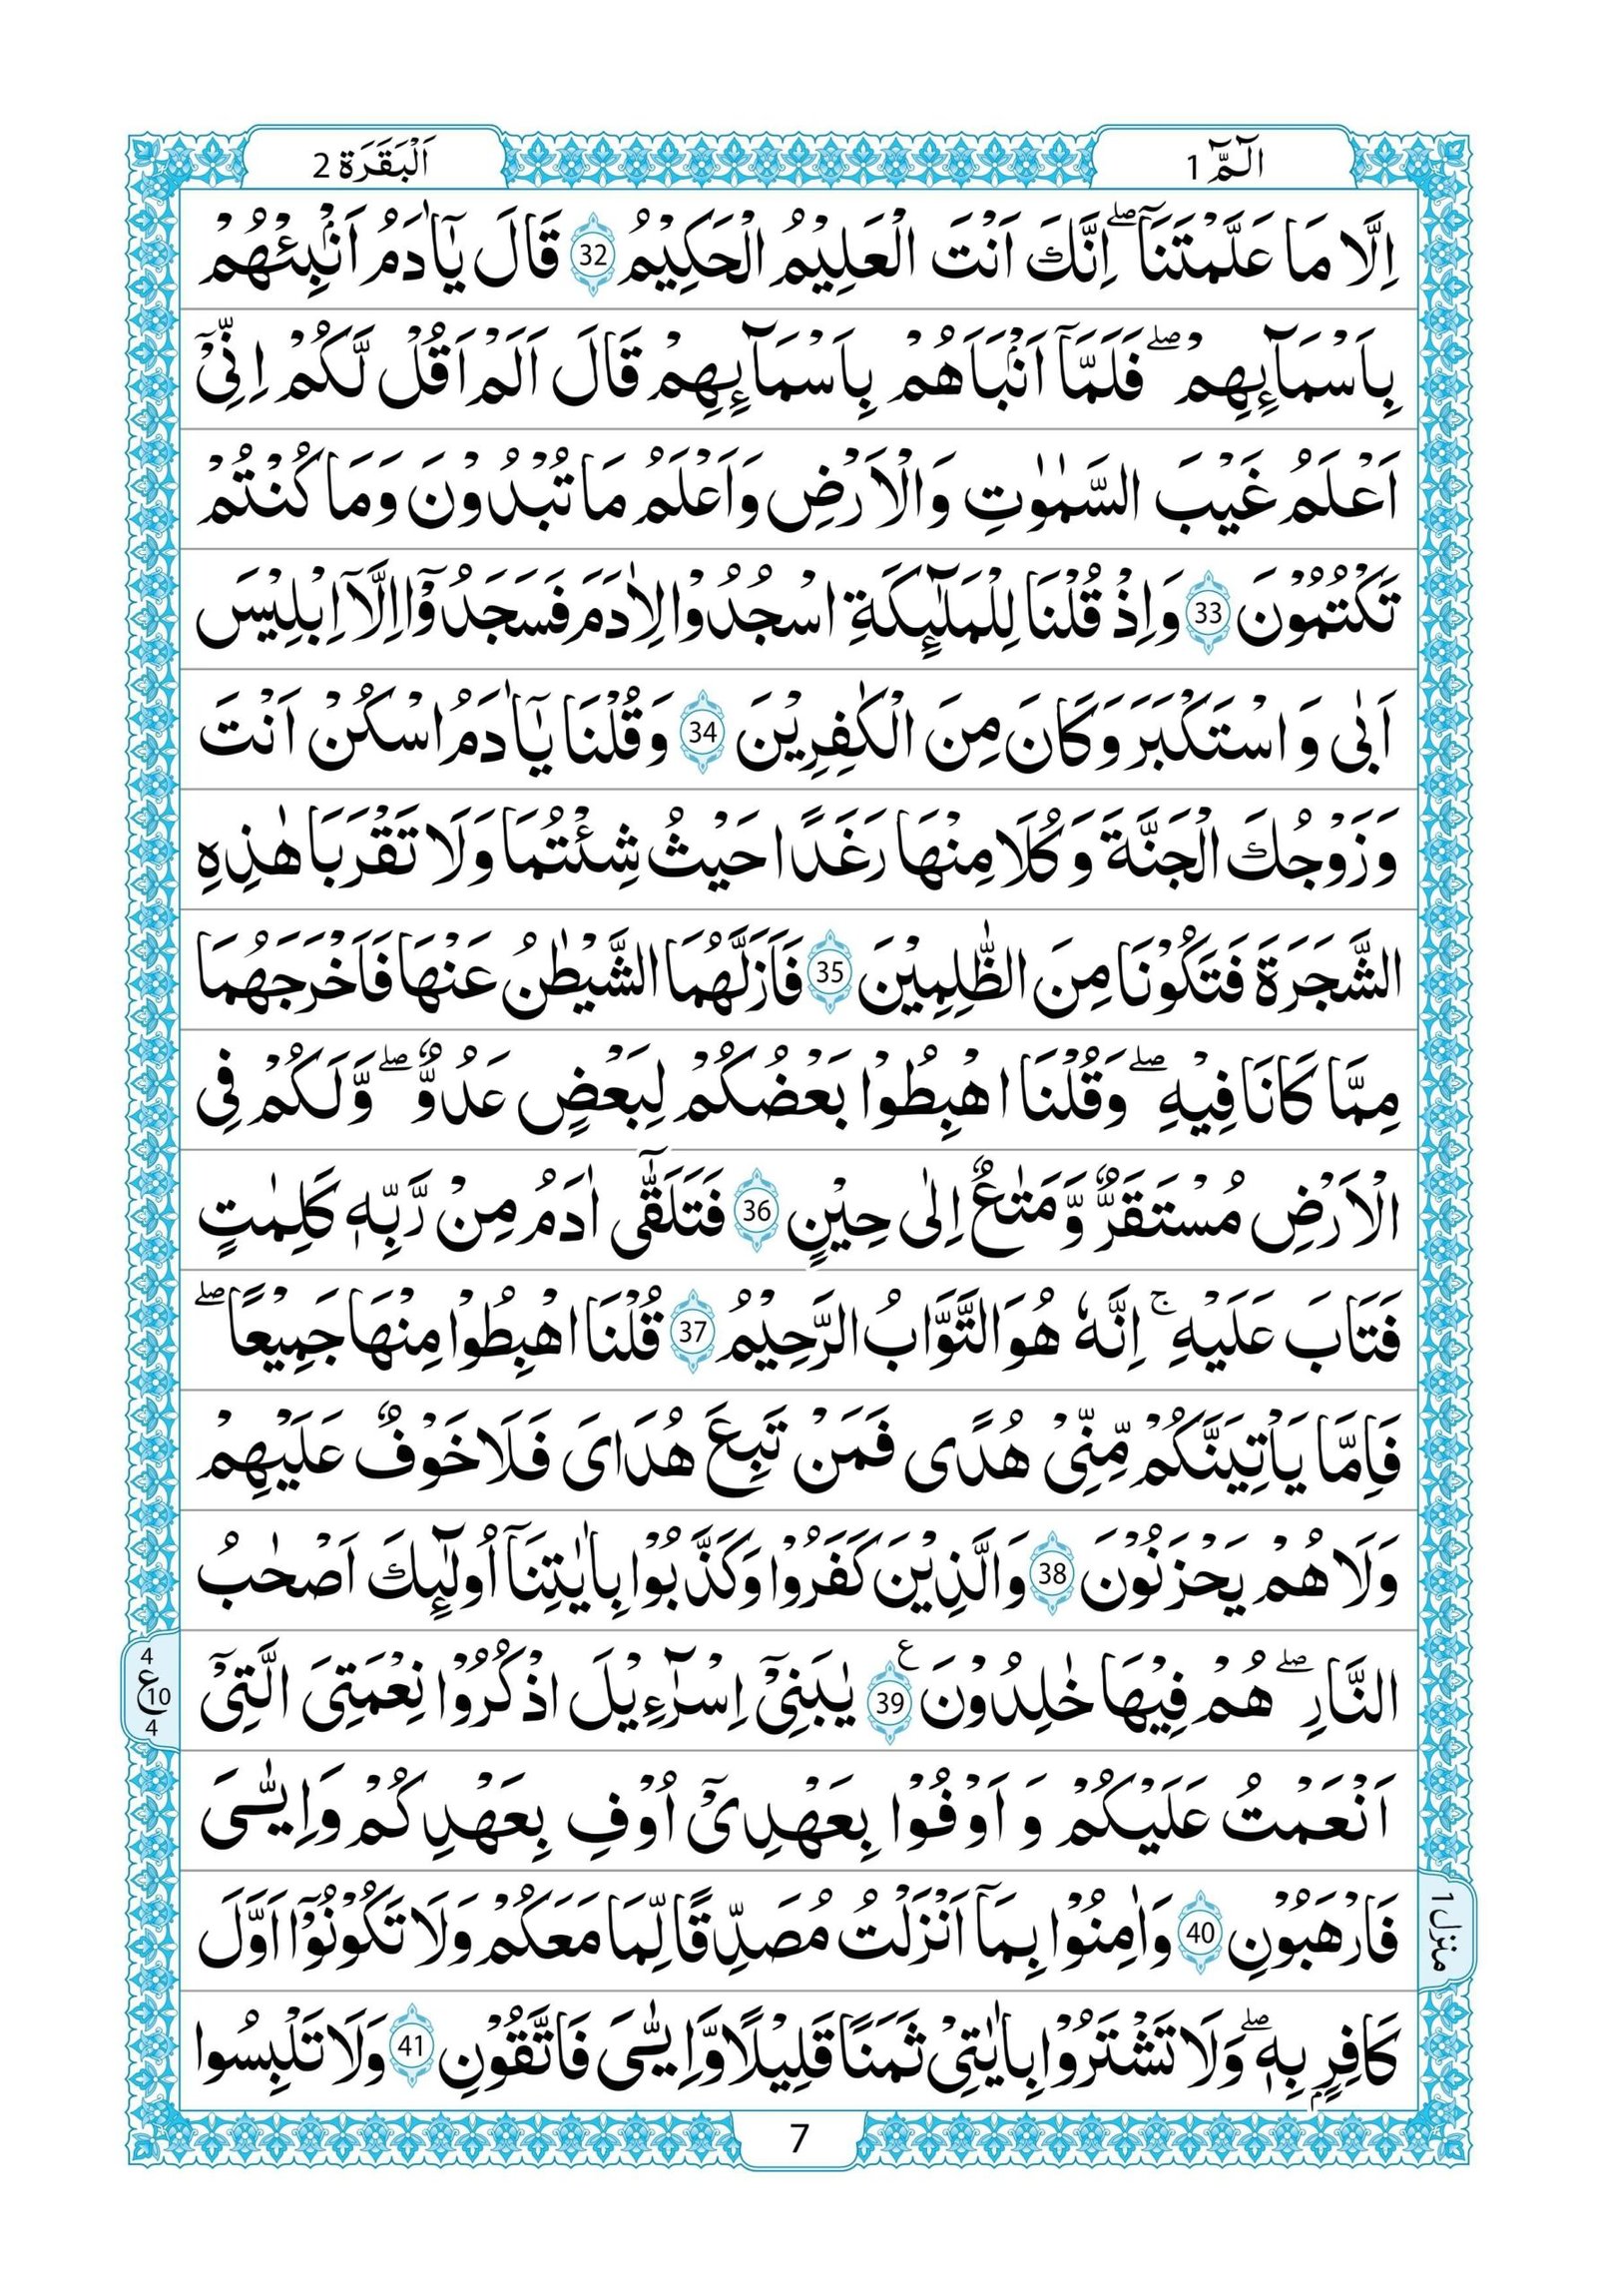 الٓمّٓ 1
اَلْبَقَرَة 2
اِلَّا مَا عَلَّمْتَنَاؕۖ اِنَّكَ اَنْتَ الْعَلِيْمُ الْحَكِيْمُ 32 قَالَ يٰٓاٰدَمُ اَنْۢبِئْهُمْ
بِاَسْمَآىِٕهِمْۖ فَلَمَّآ اَنْۢبَاَهُمْ بِاَسْمَآىِٕهِمْ قَالَ اَلَمْ اَقُلْ لَّكُمْ اِنِّيْٓ
اَعْلَمُ غَيْبَ السَّمٰوٰتِ وَالْاَرْضِ وَاَعْلَمُ مَا تُبْدُوْنَ وَمَا كُنْتُمْ
تَكْتُمُوْنَ 33 وَاِذْ قُلْنَا لِلْمَلٰٓىِٕكَةِ اسْجُدُوْا لِاٰدَمَ فَسَجَدُوْٓا اِلَّآ اِبْلِيْسَ
اَبٰى وَ اسْتَكْبَرَ وَكَانَ مِنَ الْكٰفِرِيْنَ 34 وَقُلْنَا يٰٓاٰدَمُ اسْكُنْ اَنْتَ
وَزَوْجُكَ الْجَنَّةَ وَكُلَا مِنْهَا رَغَدًا حَيْثُ شِئْتُمَا وَلَا تَقْرَبَا هٰذِهِ
الشَّجَرَةَ فَتَكُوْنَا مِنَ الظّٰلِمِيْنَ 35 فَاَزَلَّهُمَا الشَّيْطٰنُ عَنْهَا فَاَخْرَجَهُمَا
مِمَّا كَانَا فِيْهِۖ وَقُلْنَا اهْبِطُوْا بَعْضُكُمْ لِبَعْضٍ عَدُوٌّۖ وَّلَكُمْ فِى
الْاَرْضِ مُسْتَقَرٌّ وَّمَتٰعٌ اِلٰى حِيْنٍ 36 فَتَلَقّٰٓى اٰدَمُ مِنْ رَّبِّهٖ كَلِمٰتٍ
فَتَابَ عَلَيْهِۚ اِنَّهٗ هُوَ التَّوَّابُ الرَّحِيْمُ 37 قُلْنَا اهْبِطُوْا مِنْهَا جَمِيْعًاۖ
فَاِمَّا يَاْتِيَنَّكُمْ مِّنِّىْ هُدًى فَمَنْ تَبِعَ هُدَاىَ فَلَا خَوْفٌ عَلَيْهِمْ
وَلَا هُمْ يَحْزَنُوْنَ 38 وَالَّذِيْنَ كَفَرُوْا وَكَذَّبُوْا بِاٰيٰتِنَآ اُولٰٓىِٕكَ اَصْحٰبُ
النَّارِۖ هُمْ فِيْهَا خٰلِدُوْنَ ع 39 يٰبَنِىْٓ اِسْرَآءِيْلَ اذْكُرُوْا نِعْمَتِىَ الَّتِىْٓ
4 ع 10 4
اَنْعَمْتُ عَلَيْكُمْ وَ اَوْفُوْا بِعَهْدِىْٓ اُوْفِ بِعَهْدِكُمْ وَاِيّٰىَ
فَارْهَبُوْنِ 40 وَاٰمِنُوْا بِمَآ اَنْزَلْتُ مُصَدِّقًا لِّمَا مَعَكُمْ وَلَا تَكُوْنُوْٓا اَوَّلَ
منزل 1
كَافِرٍۢ بِهٖۖ وَلَا تَشْتَرُوْا بِاٰيٰتِىْ ثَمَنًا قَلِيْلًا وَّاِيّٰىَ فَاتَّقُوْنِ 41 وَلَا تَلْبِسُوا
7